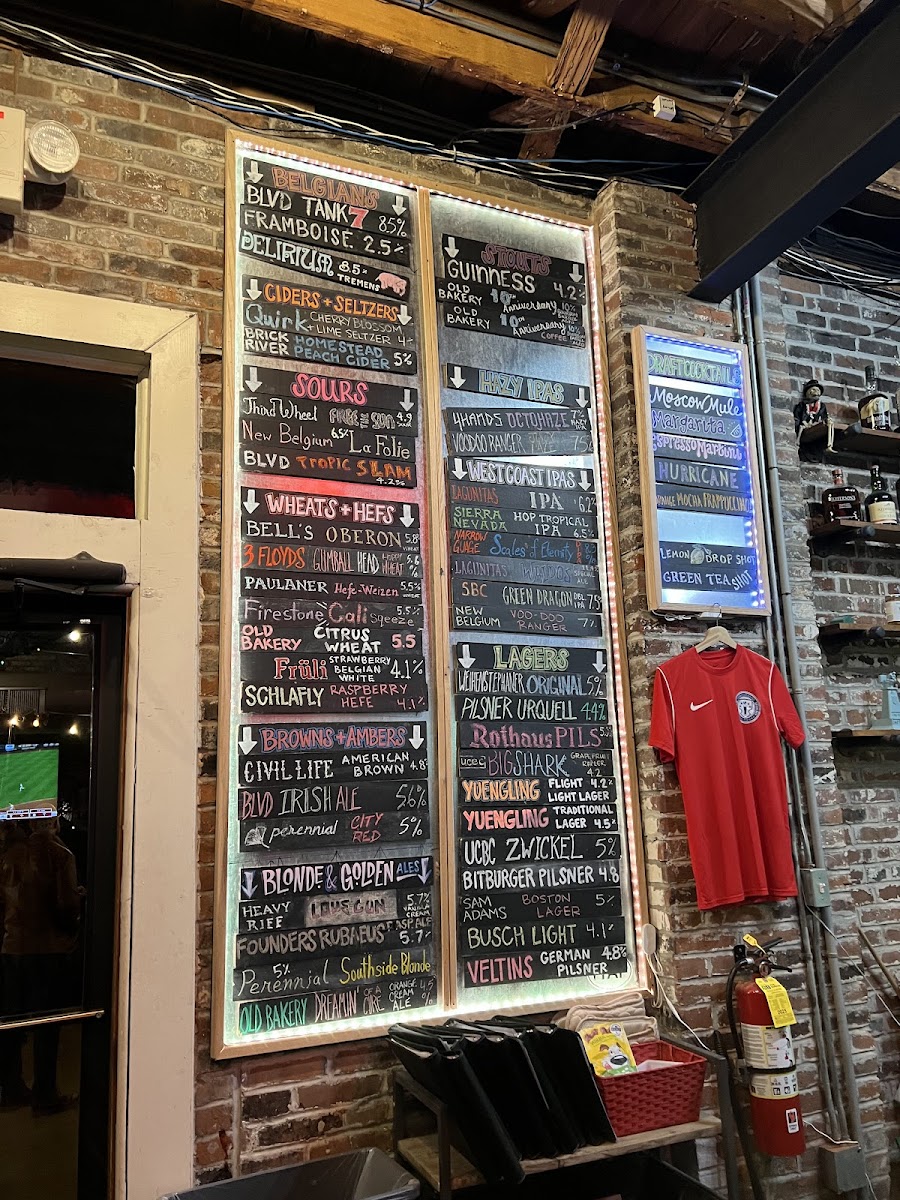 BELGIANS
BLVD TANK 7 8.5%
FRAMBOISE 2.5%
DELIRIUM 8.5% TREMENS
CIDERS + SELTZERS
Quirk CHERRY BLOSSOM
+ LIME SELTZER 4%
BRICK RIVER HOMESTEAD
PEACH CIDER 5%
SOURS
Third Wheel FREE THE SUN 4.9
New Belgium 6.5% La Folie
BLVD TROPIC SLAM
4.2%
WHEATS + HEFS
BELL'S OBERON 5.8
3 FLOYDS GUMBALL HEAD WHEAT
PAULANER Hefe-Weizen 5.5%
Firestone Cali Squeeze 5.5%
OLD BAKERY CITRUS WHEAT 5.5
Früli STRAWBERRY BELGIAN WHITE 4.1%
SCHLAFLY RASPBERRY HEFE 4.1%
BROWNS + AMBERS
CIVIL LIFE AMERICAN BROWN 4.8%
BLVD IRISH ALE 5.6%
perennial CITY RED 5%
BLONDE & GOLDEN ALES
HEAVY RIFF LOVE GUN 5.7% VANILLA CREAM ALE
FOUNDERS RUBAEUS RASP. ALE 5.7%
Perennial 5% Southside Blonde
OLD BAKERY DREAMIN ORANGE CREAM ALE 4.5%
STOUTS
GUINNESS 4.2%
OLD BAKERY 10th Anniversary 10%
OLD BAKERY 10th Anniversary 10%
COFFEE
HAZY IPAS
4HANDS OCTOHAZE 7%
VOODOO RANGER
WEST COAST IPAS
LAGUNITAS IPA 6.2%
SIERRA NEVADA HOP TROPICAL IPA 6.5%
NARROW GUAGE Scales of Eternity
LAGUNITAS
SBC GREEN DRAGON DBL IPA 7.5%
NEW BELGIUM VOO-DOO RANGER 7%
LAGERS
WEIHENSTEPHANER ORIGINAL 5%
PILSNER URQUELL 4.4%
Rothaus PILS
BIG SHARK GRAPEFRUIT RADLER 4.2
YUENGLING FLIGHT 4.2%
LIGHT LAGER
YUENGLING TRADITIONAL
LAGER 4.5%
UCBC ZWICKEL 5%
BITBURGER PILSNER 4.8
SAM ADAMS BOSTON LAGER 5%
BUSCH LIGHT 4.1%
VELTINS GERMAN PILSNER 4.8%
DRAFT COCKTAILS
Moscow Mule
Margarita
Espresso Martini
HURRICANE
MOCHA FRAPPUCCINO
LEMON DROP SHOT
GREEN TEA SHOT